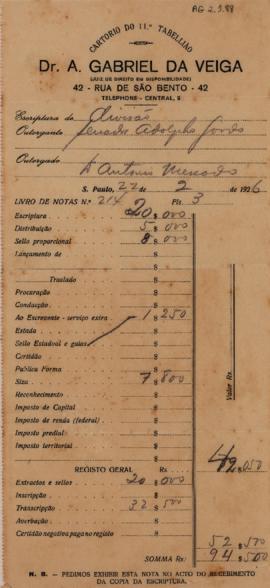 AG 2.3.88
CARTORIO DO 11.º TABELLIÃO
Dr. A. GABRIEL DA VEIGA
(JUIZ DE DIREITO EM DISPONIBILIDADE)
42 - RUA DE SÃO BENTO - 42
TELEPHONE - CENTRAL, 5
Escriptura de divisão
Outorgante Senador Adolpho Gordo
Outorgado Dr Antonio Mercado
S. Paulo, 22 de 2 de 1926
LIVRO DE NOTAS N.º 214 Fls. 3
Escriptura 20 $ 000
Distribuição 5 $ 000
Sello proporcional 8 $ 000
Lançamento de $
Traslado $
Procuração $
Conducção $
Ao Escrevente - serviço extra 1 $ 250
Estada $
Sello Estadoal e guias $
Certidão $
Publica Forma $
Siza 7 $ 800
Reconhecimento $
Imposto de Capital $
Imposto de renda (federal) $
Imposto predial $
Imposto territorial $
Valor Rs.
42 $ 050
REGISTO GERAL Rs. $
Extractos e sellos 20 $ 000
Inscripção $
Transcripção 32 $ 500
Averbação $
Certidão negativa paga no registo $
52 $ 500
SOMMA Rs: 94 $ 500
N. B. - PEDIMOS EXHIBIR ESTA NOTA NO ACTO DO RECEBIMENTO
DA COPIA DA ESCRIPTURA.